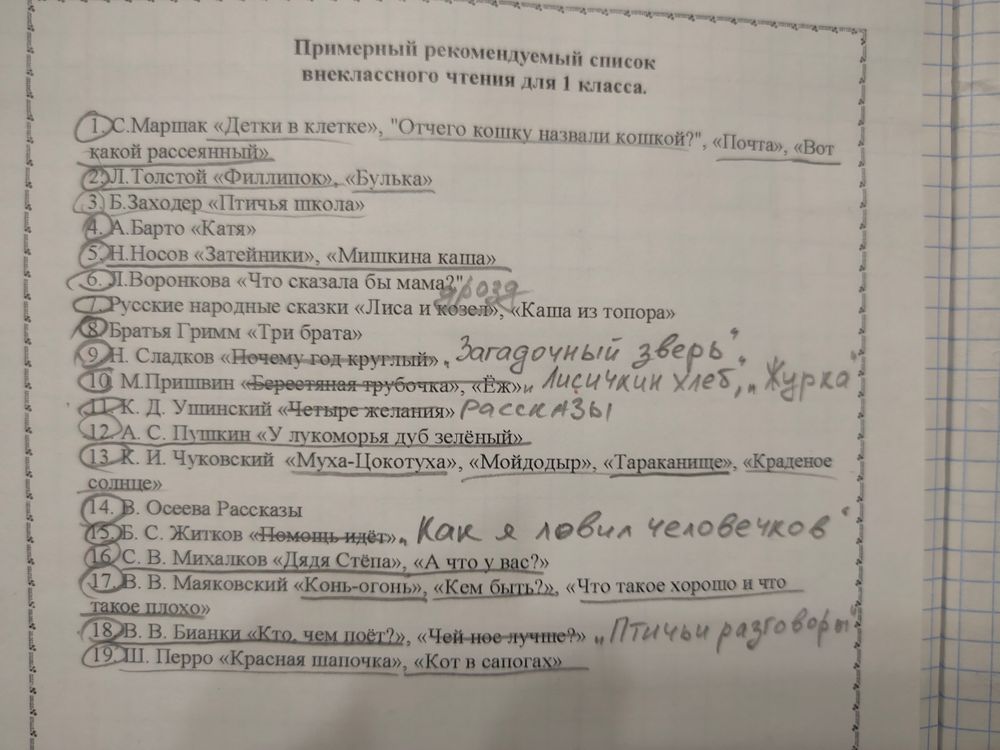 Примерный рекомендуемый список
внеклассного чтения для 1 класса.
1. С.Маршак «Детки в клетке», "Отчего кошку назвали кошкой?", «Почта», «Вот
какой рассеянный»
2. Л.Толстой «Филлипок», «Булька»
3. Б.Заходер «Птичья школа»
4. А.Барто «Катя»
5. Н.Носов «Затейники», «Мишкина каша»
6. Л.Воронкова «Что сказала бы мама?"
дрозд
7. Русские народные сказки «Лиса и козел», «Каша из топора»
8. Братья Гримм «Три брата»
9. Н. Сладков «Почему год круглый», „Загадочный зверь“,
10. М.Пришвин «Берестяная трубочка», «Ёж»„ Лисичкин хлеб“, „Журка“
11. К. Д. Ушинский «Четыре желания» РАССКАЗЫ
12. А. С. Пушкин «У лукоморья дуб зелёный»
13. К. И. Чуковский «Муха-Цокотуха», «Мойдодыр», «Тараканище», «Краденое
солнце»
14. В. Осеева Рассказы
15. Б. С. Житков «Помощь идёт», „Как я ловил человечков“
16. С. В. Михалков «Дядя Стёпа», «А что у вас?»
17. В. В. Маяковский «Конь-огонь», «Кем быть?», «Что такое хорошо и что
такое плохо»
18. В. В. Бианки «Кто, чем поёт?», «Чей нос лучше?» „Птичьи разговоры“
19. Ш. Перро «Красная шапочка», «Кот в сапогах»